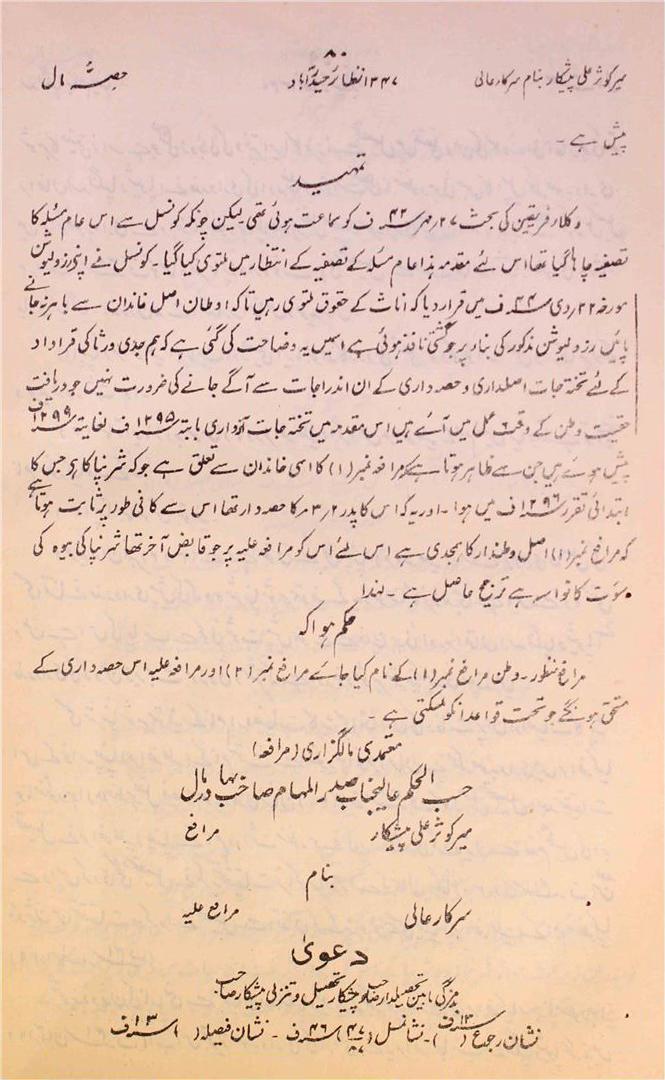 ۸۰
میر کوثر علی پیشکار بنام سرکار عالی ۱۳۴۷ نظائر حیدرآباد حصہ مال
پیش ہے۔
تمہید
وکلاء فریقین کی بحث ۲۷؍مہر ۴۲ ف کو سماعت ہوئی تھی لیکن چونکہ کونسل سے اس عام مسئلہ کا
تصفیہ چاہا گیا تھا اس لئے مقدمہ ہذا عام مسئلہ کے تصفیہ کے انتظار میں ملتوی کیا گیا۔ کونسل نے اپنی رزولیوشن
مورخہ ۲۲؍دی ۴۴ ف میں قرار دیا کہ اناث کے حقوق ملتوی رہیں تاکہ اوطان اصل خاندان سے باہر نہ جانے
پائیں رزولیوشن مذکور کی بناء پر جو گشتی نافذ ہوئی ہے اسمیں یہ وضاحت کی گئی ہے کہ ہم جدی ورثا کی قرارداد
کے لئے تختہ جات اصلداری و حصہ داری کے ان اندراجات سے آگے جانے کی ضرورت نہیں جو دریافت
حقیت وطن کے وقت عمل میں آئے ہیں اس مقدمہ میں تختہ جات بابتہ ۱۲۹۵ ف لغایتہ ۱۲۹۹ ف
پیش ہوئے ہیں جن سے ظاہر ہوتا ہے کہ مرافعہ نمبر (۱) کا اسی خاندان سے تعلق ہے جو کہ شرنپا کا ہو جس کا
ابتدائی تقرر ۱۲۹۶ ف میں ہوا۔ اور یہ کہ اس کا پدر ۲؍۳؍ کا حصہ دار تھا اس سے کافی طور پر ثابت ہوتا ہے
کہ مرافع نمبر (۱) اصل وطندار کا ہمجدی ہے اس لئے اس کو مرافعہ علیہ پر جو قابض آخر تھا شرنپا کی بیوہ کی
سوت کا نواسہ ہے ترجیح حاصل ہے۔ لہذا
حکم ہوا کہ
مرافعہ منظور۔ وطن مرافع نمبر (۱) کے نام کیا جائے مرافع نمبر (۲) اور مرافعہ علیہ اس حصہ داری کے
مستحق ہونگے جو تحت قواعد انکو ملسکتی ہے۔
معتمدی مالگزاری (مرافعہ)
حسب الحکم عالیجناب صدر المہام صاحب بہادر مال
میر کوثر علی پیشکار مرافع
بنام
سرکار عالی مرافع علیہ
دعویٰ
بزرگی مابین تحصیلدار صاحب و پیشکار تحصیل و تنزلی پیشکار صاحب
نشان رجوع ( ) ۱۳ ف۔ نشانمثل (۴۷/۸۷) ۴۶ ف۔ نشان فیصلہ ( ) ۱۳ ف